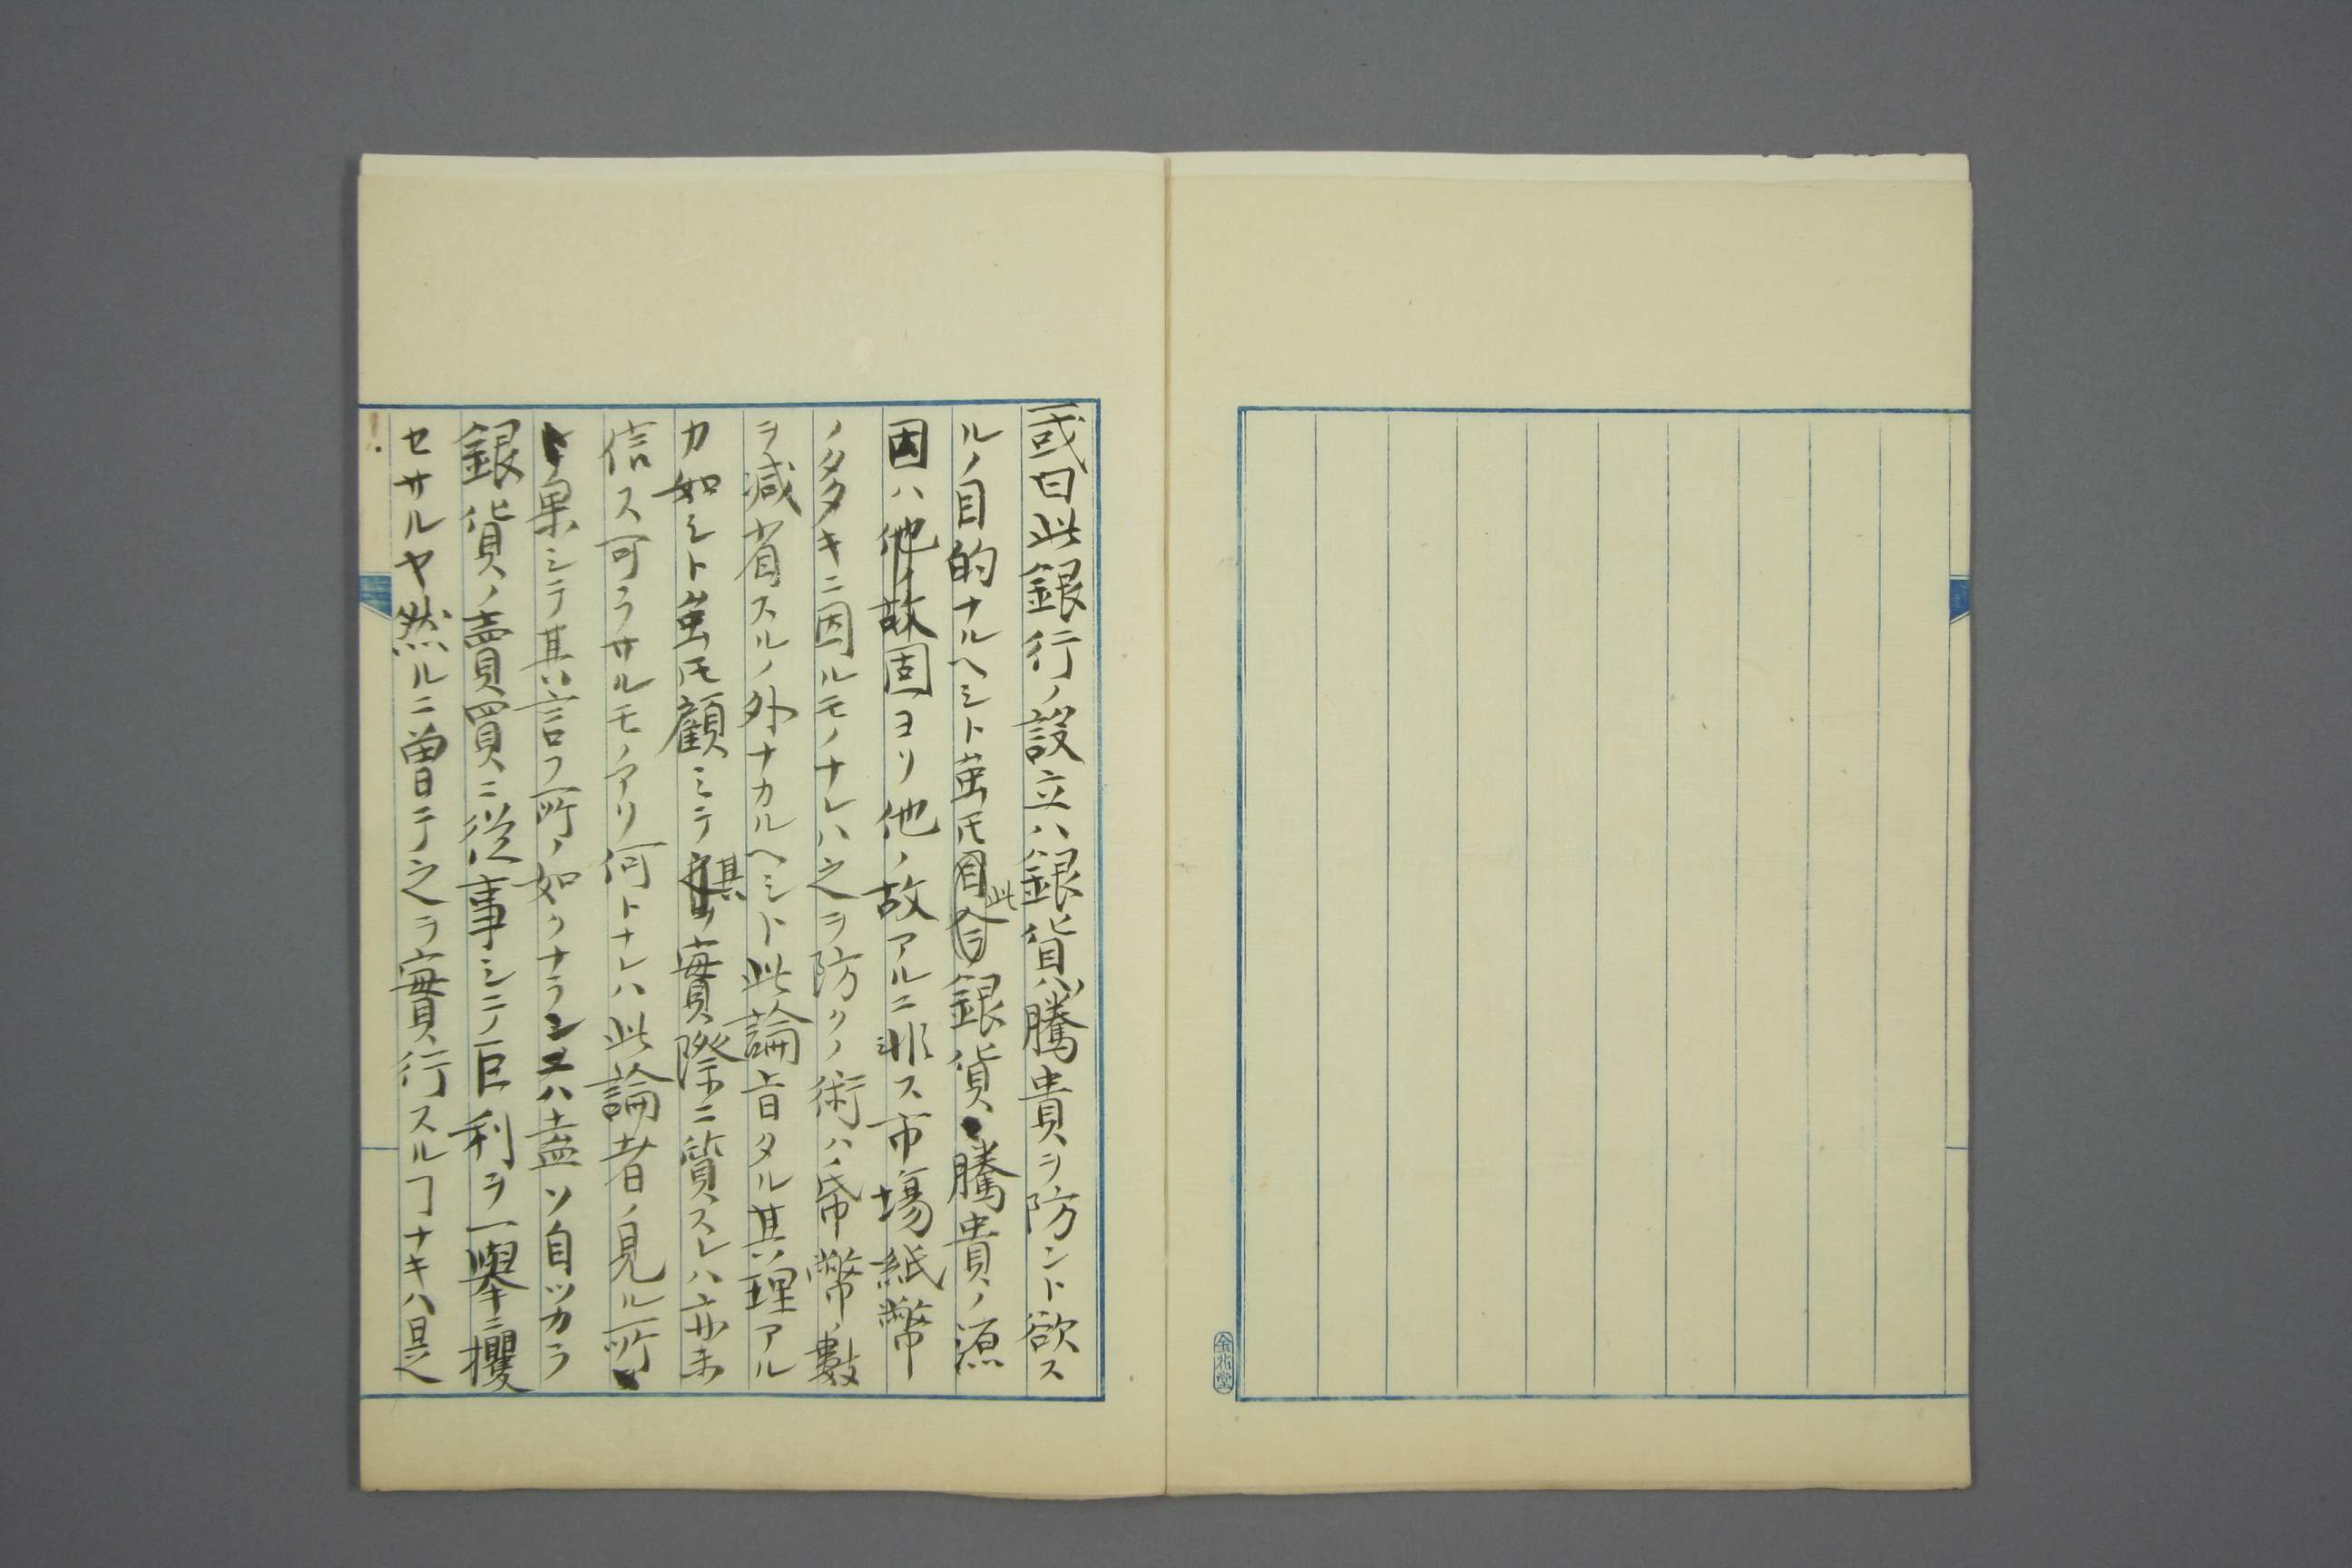 或曰此銀行ノ設立ハ銀貨ノ騰貴ヲ防ント欲ス
ルノ目的ナルヘシト蓋氏此銀貨騰貴ノ源
因ハ固ヨリ他ノ故アルニ非ス市場紙幣
ノ多キニ因ルモノナレハ之ヲ防クノ術ハ紙幣ノ數
ヲ減省スルノ外ナカルヘシト此論旨タル其理アル
カ如シト雖モ顧ミテ其實際ニ質スレハ亦未
信ス可ラサルモノアリ何トナレハ此論者ノ見ル所
果シテ其言フ所ノ如クナラシメハ盍ソ自ツカラ
銀貨ノ賣買ニ從事シテ巨利ヲ一擧ニ攫
セサルヤ然ルニ曽テ之ヲ實行スルヿナキハ是
金花堂